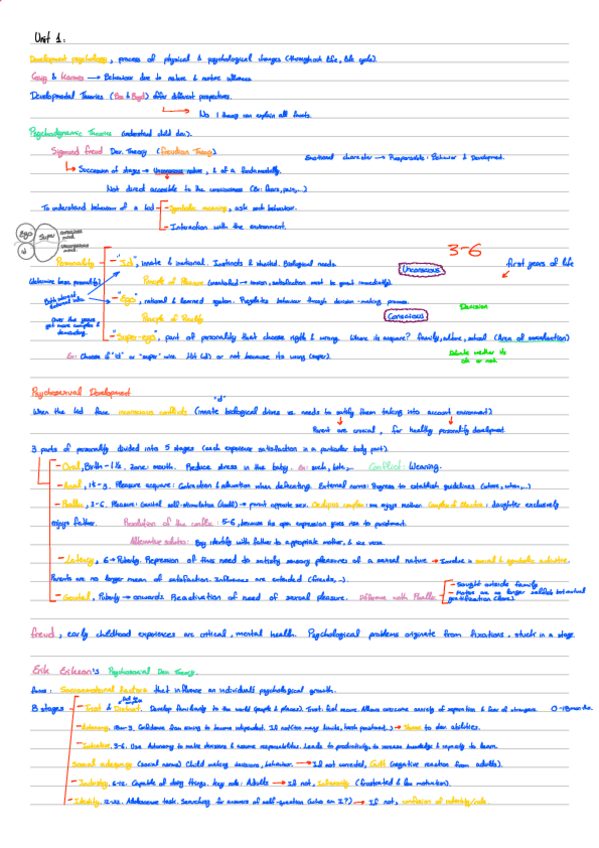 Unit 1:
Development psychology, process of physical & psychological changes (throughout life, life cycle).
→ Behaviour due to nature & nurture
Developmental Theories ( & ) offer different perspectives.
No 1 theory can explain all
Psychodynamic Theories (understand child dev.).
Sigmund freud Dev. Theory (freudian Theory)
Emotional character → Responsible: Behavior & Development.
Succession of stages → Unconscious nature, & of a
Not direct accessible to the consciousness (Ex: fears, pain,...)
To understand behaviour of a kid - Symbolic meaning, ask such behaviour.
- Interaction with the environment.
Ego Super
3-6
first years of life
Personality - "Id", innate & irrational. Instincts & Biological needs.
Unconscious
Principle of Pleasure (satisfaction must be great immediately).
- "Ego", rational & learned system. Regulates behaviour through decision-making process.
Decision
Principle of Reality
Conscious
Over the years get more complex & demanding.
- "Super-ego", part of personality that choose rigth & wrong. Where its acquire? family, culture, school (Area of socialization)
Ex: Choose if "id" or "super" wins. or not because its wrong (super).
Psychosexual Development
"d"
When the kid face unconscious conflicts (innate biological drives vs. needs to satisfy them taking into account environment)
Parent are crucial, for healthy personality development
3 parts of personality divided into 5 stages (each experience satisfaction in a particular body part).
- Oral, Birth - 1½. Zone: mouth. Reduce stress in the baby. Ex: suck, bite,... Conflict: Weaning.
- Anal, 1½-3. Pleasure acquire: & when defecating. External norms: Parents to establish guidelines (where, when,...)
- Phallic, 3-6. Pleasure: Genital self-stimulation → parent opposite sex. Oedipus complex: son enjoys mother. Complex of Electra: daughter exclusively
enjoys father. Resolution of the conflict: 5-6, because its open expression gives rise to punishment.
Alternative solution: Boy identify with father to appropriate mother, & vice versa.
- Latency, 6 → Puberty. Repression of this need to satisfy sensory pleasures of a sexual nature → Involve in social & symbolic activities.
Parents are no longer mean of satisfaction. Influences are extended (friends, ..)
- Genital, Puberty → onwards. Reactivation of need of sexual pleasure. Difference with Phallic
- Sought outside family
- Motives are no longer selfish but mutual gratification
freud, early childhood experiences are critical, mental health. Psychological problems originate from fixations, stuck in a stage.
Erik Erikson's Psychosocial Dev. Theory.
focus: Socioemotional factors that influence an individual's psychological growth.
8 stages - Trust & Distrust. Develop familiarity to the world (people & places). Trust: feel secure. Allows overcome anxiety of separation & fear of strangers. 0-18months.
- Autonomy, 18m-3. Confidence from moving to become independent. If not (too many limits, harsh punishment..) → Shame to dev. abilities.
- Initiative, 3-6. Use Autonomy to make decisions & assume responsibilities. Leads to productivity, to increase knowledge & capacity to learn.
Child making decisions, behaviour. → If not corrected, Guilt (negative reaction from adults).
- Industry, 6-12. Capable of doing things. Key role: Adults → If not, Inferiority (frustrated & low motivation).
- Identity, 12-22. Adolescence task. Searching for answers of self-question (who am I?) → If not, confusion of identity/role.